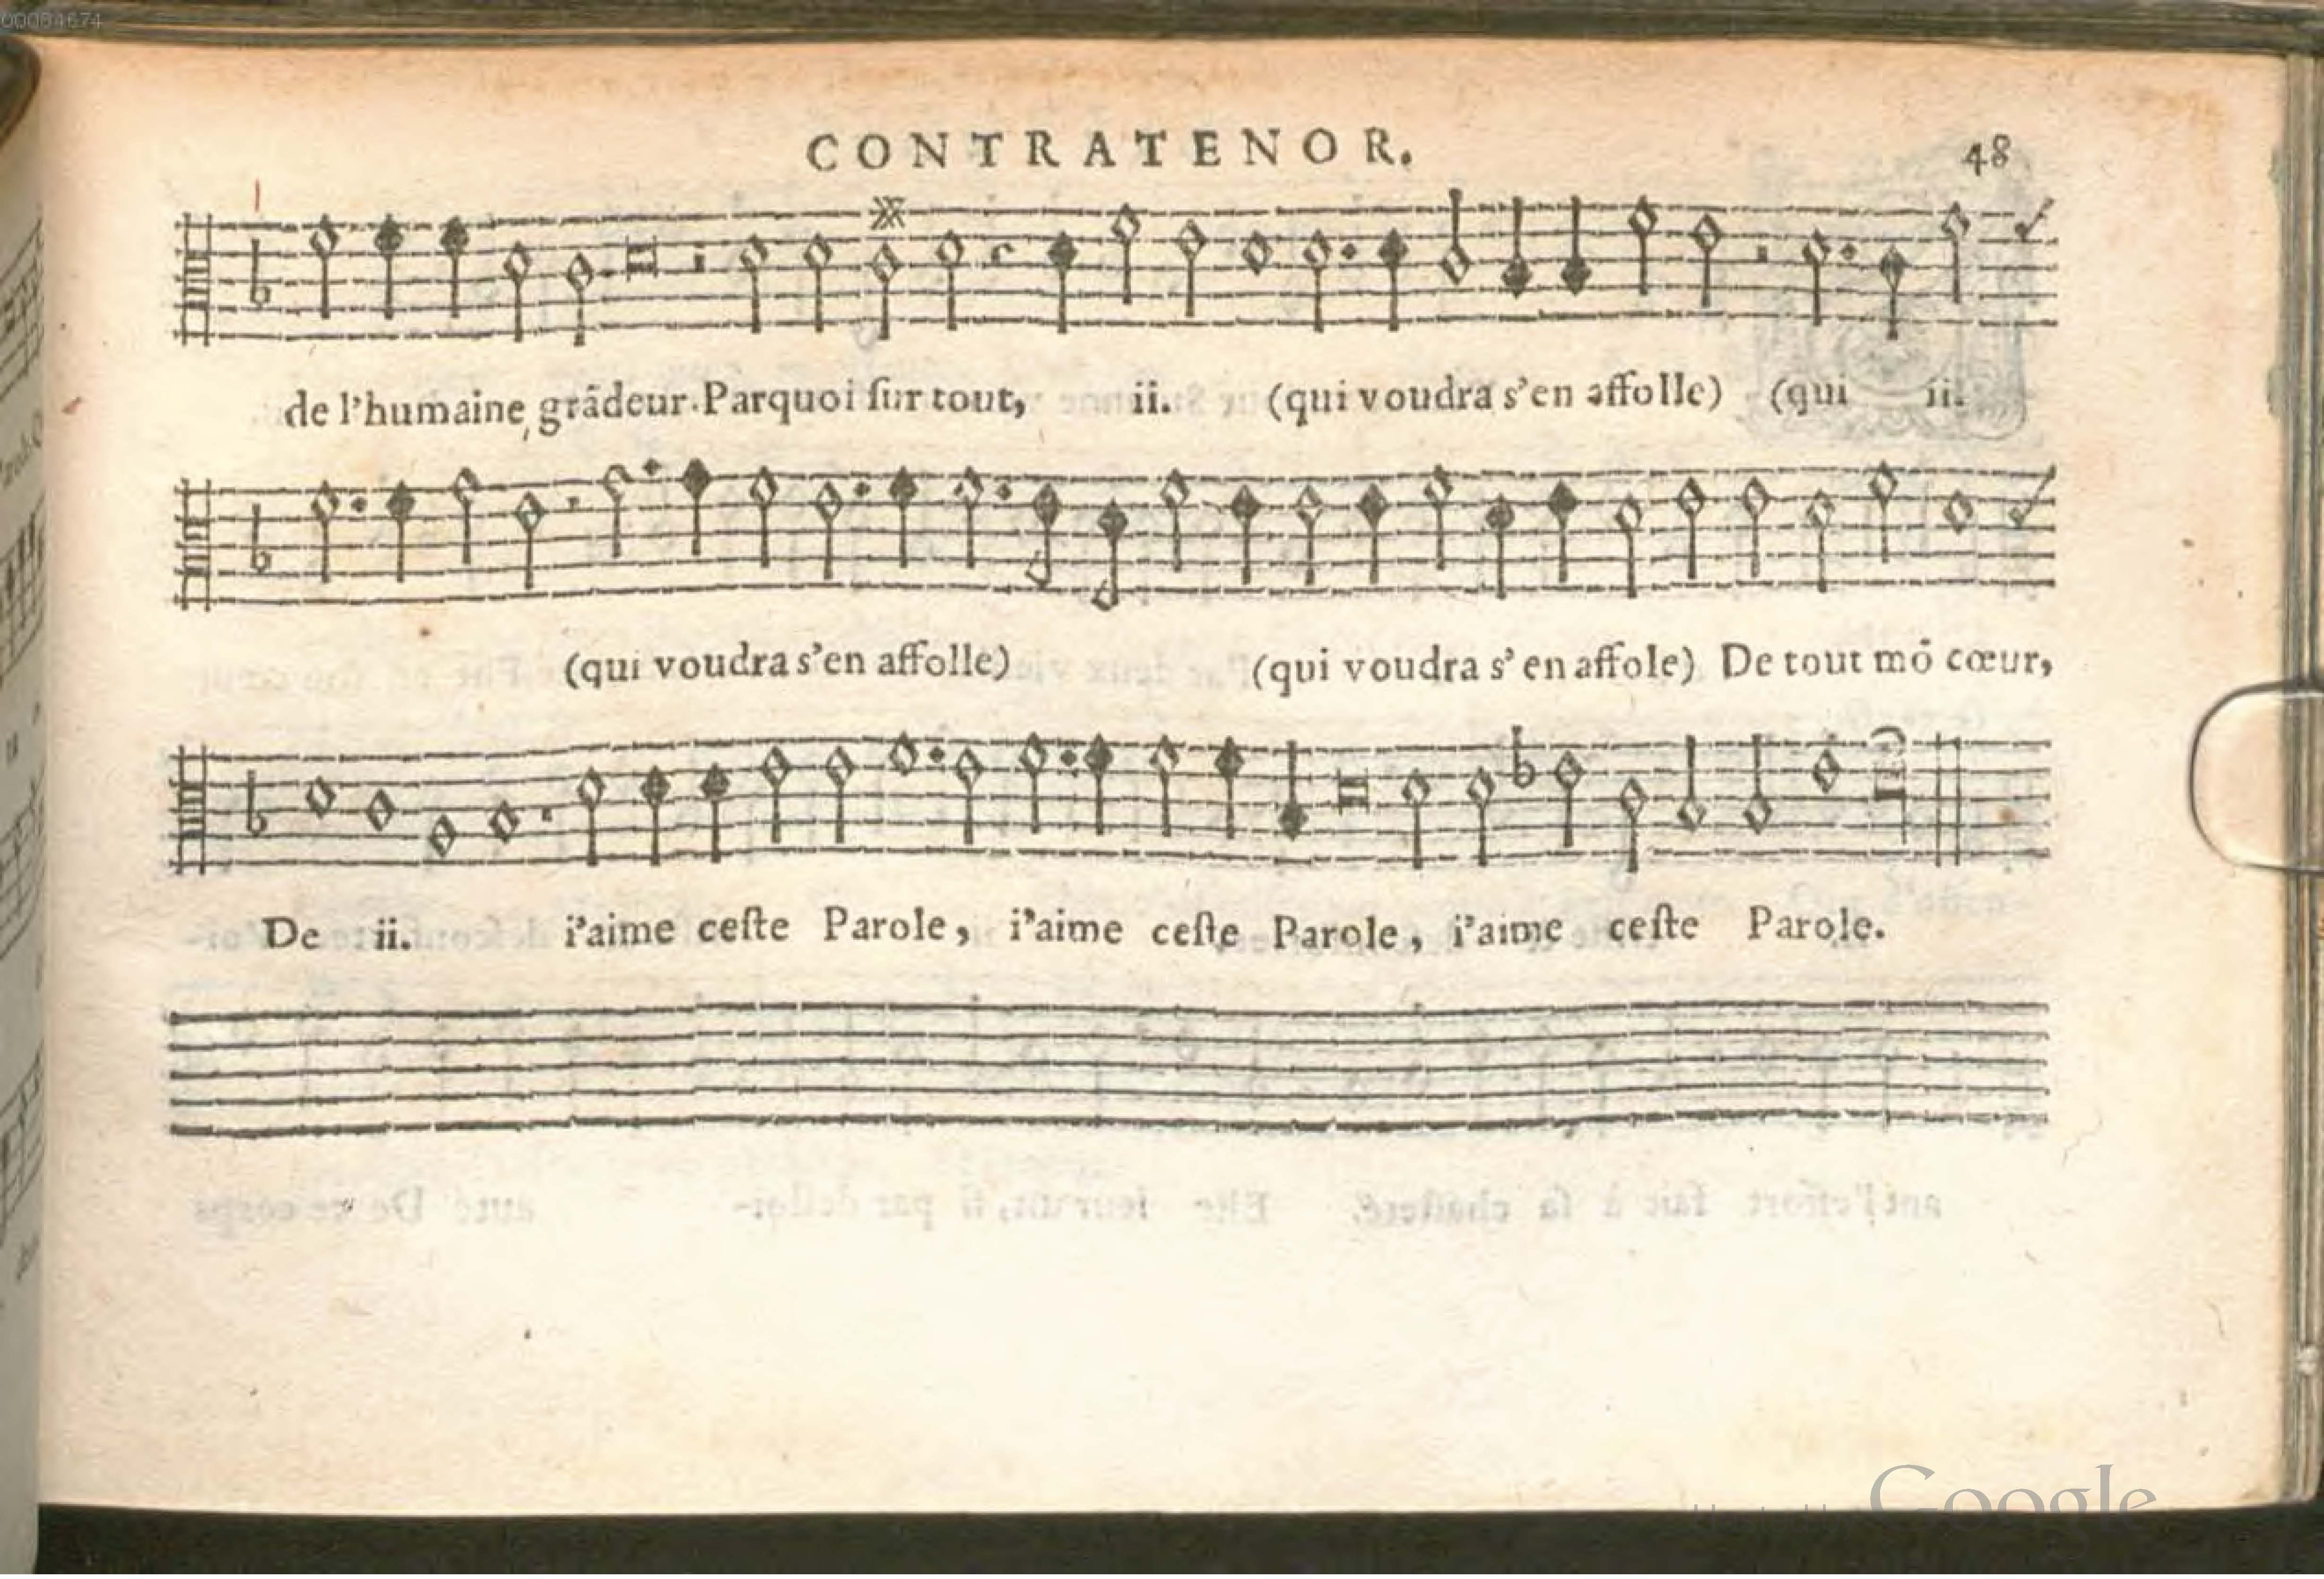 00084674
CONTRATENOR. 48
de l'humaine grãdeur. Parquoi ſur tout, ii. (qui voudra s'en affolle) (qui ii.
(qui voudra s'en affolle) (qui voudra s'en affole) De tout mõ cœur,
De ii. i'aime ceſte Parole, i'aime ceſte Parole, i'aime ceſte Parole.
Google